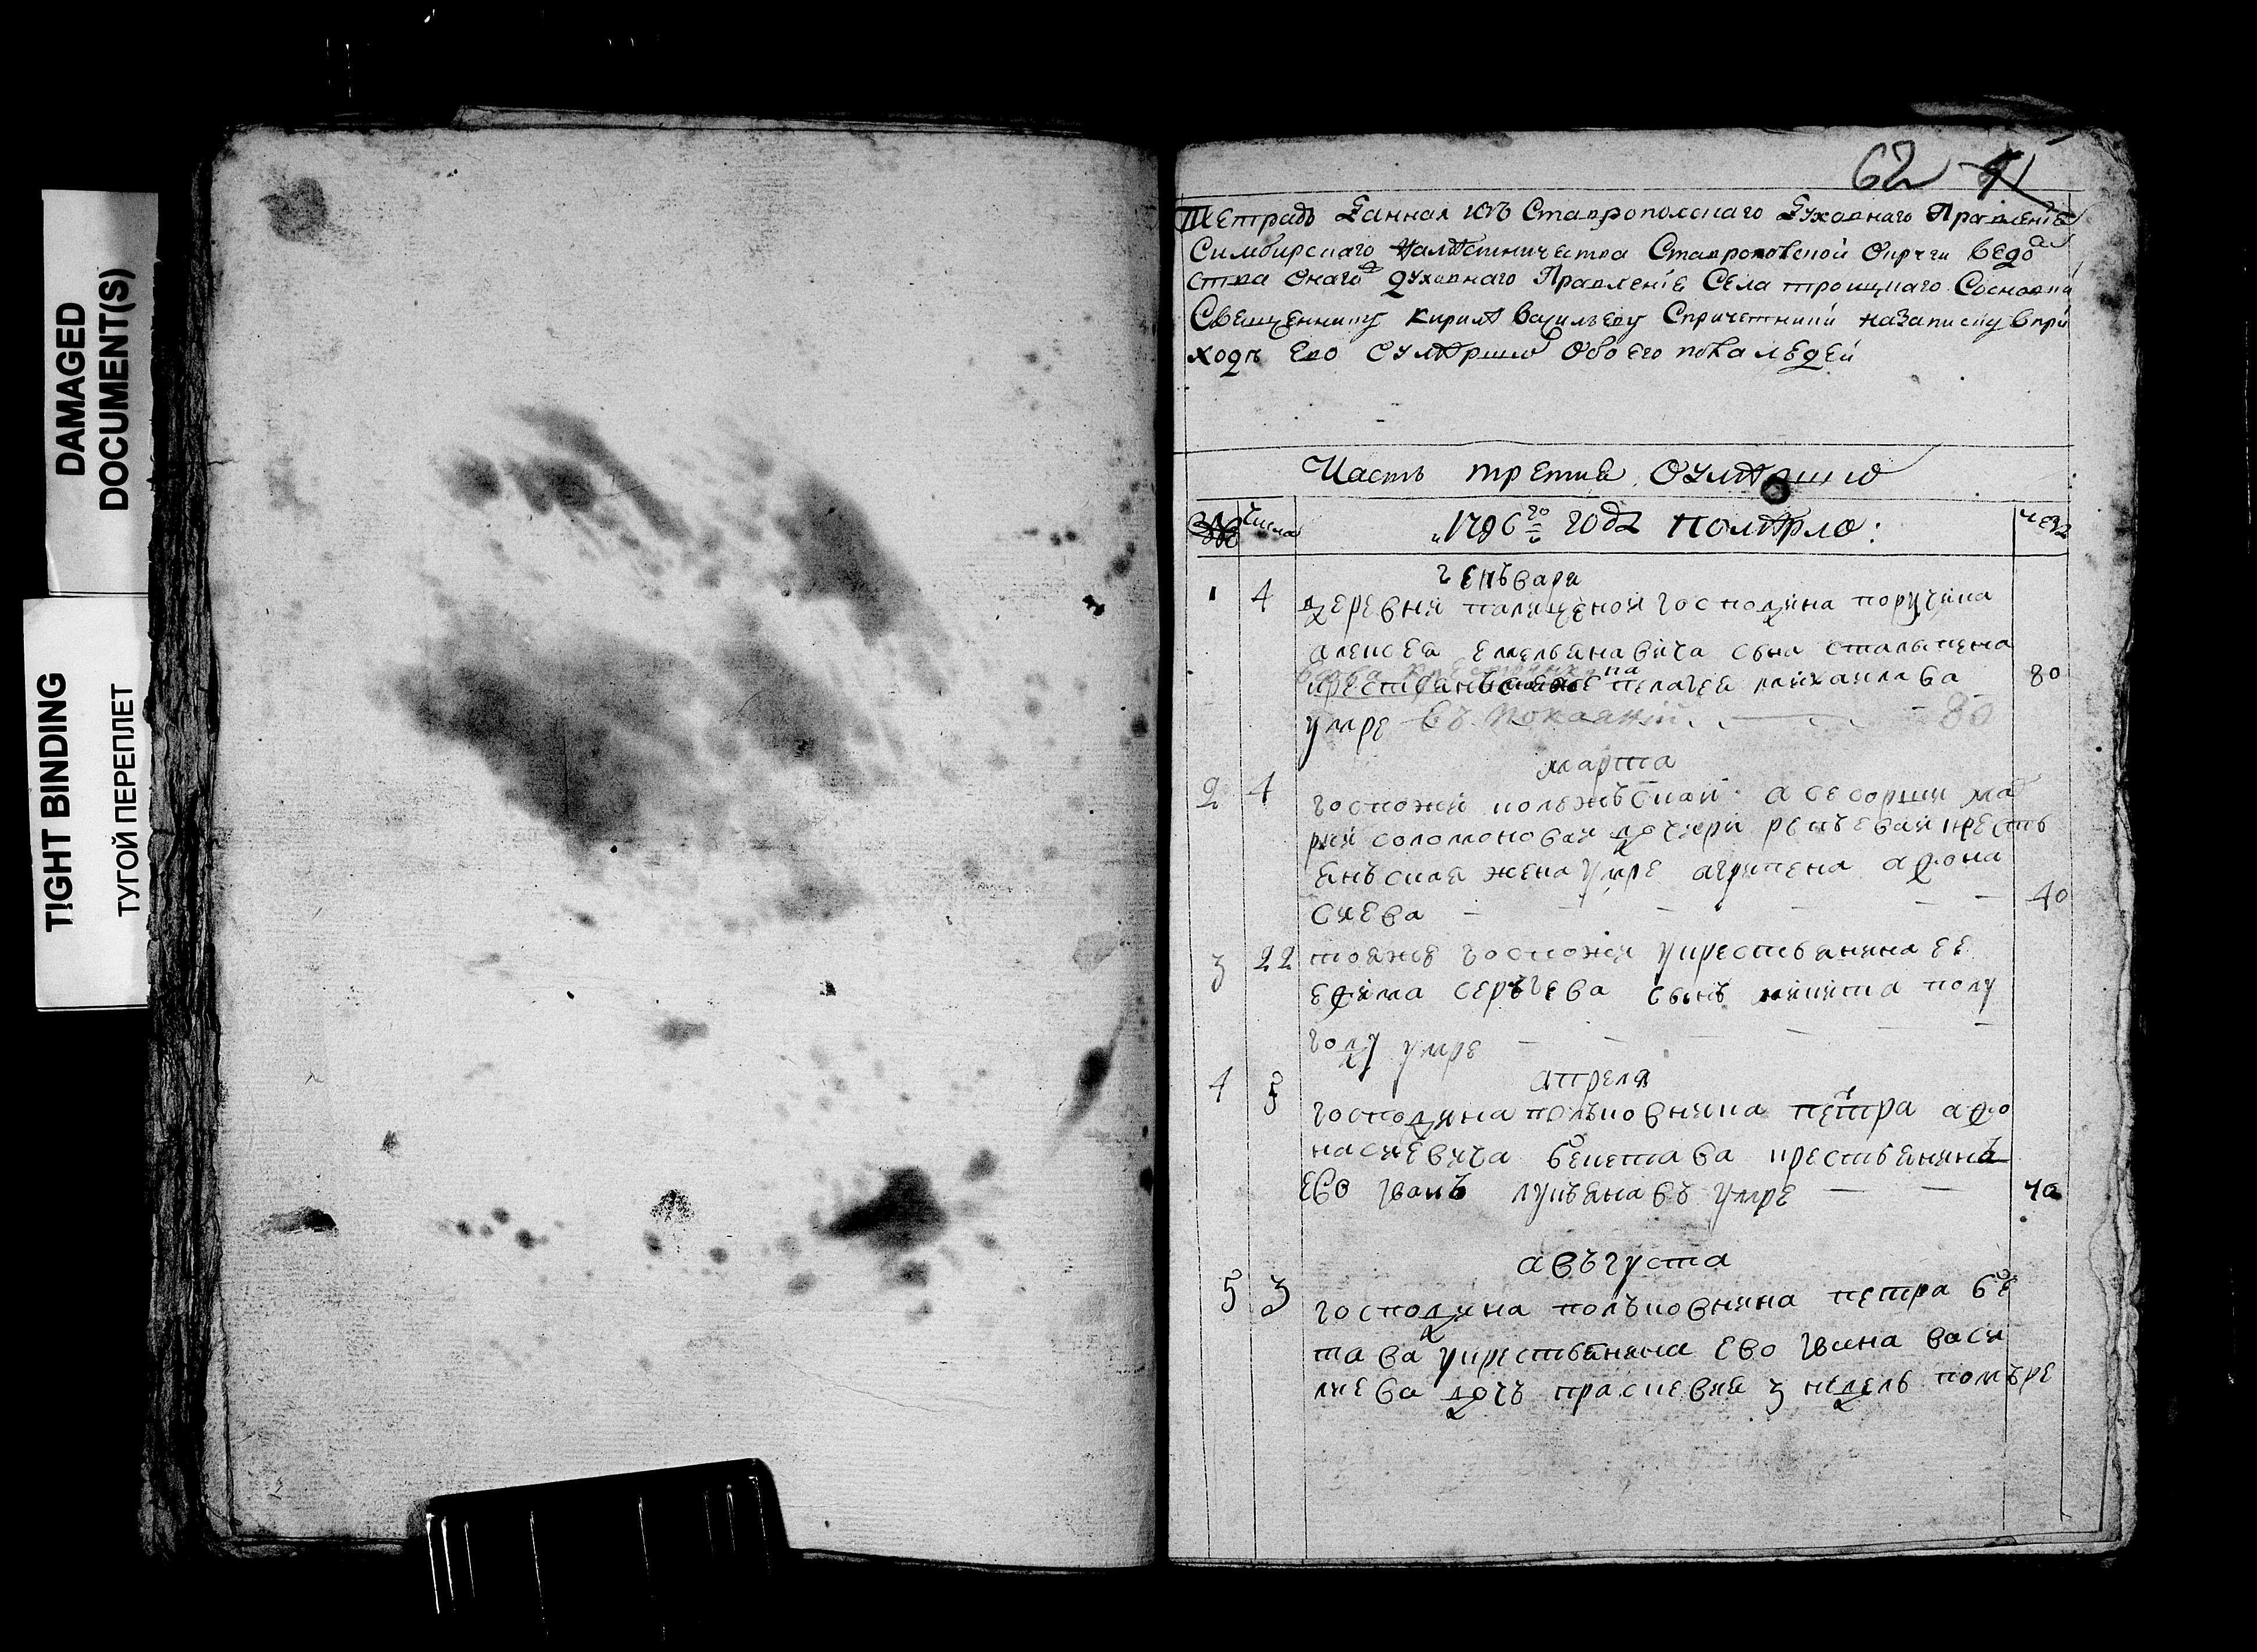 DAMAGED
DOCUMENT(S)
TIGHT BINDING
ТУГОЙ ПЕРЕПЛЕТ
62 41
Тетрадь Данная изъ Ставрополскаго Духовнаго Правления
Симбирскаго Намѣстничества Ставропольской округи Ведо
ства онаго Духовнаго Правления Села троицкаго Сосновки
Священнику Кирилѣ Васильеву Спричетники на Записку Впри
ходѣ Ево Оумѣршихъ Обоего пола людей
Часть третия Оумѣршихъ
№ Числа 1796 го года Помѣрло:
генъваря
1 4 деревни господина порутчика
алексея емельяновича сына
пелагея михаилава 80
умре въ покаянии 80
марта
2 4 госпожи асесорши ма
рии соломоновай дочери кресть
янъская жена умре агрипена афона
сиева 40
3 22 тояже госпожи у крестьянина ее
ефима серъгева сынъ никита полу
году умре
апреля
4 5 господина полъковника петра афо
насиевича бекетава крестьянинъ
ево иванъ лукъянавъ умре 40
авъгуста
5 3 господина полъковника петра бекѣ
тава у крестьянина ево ивана васи
лиева дочъ прасковия 3 недель помъре